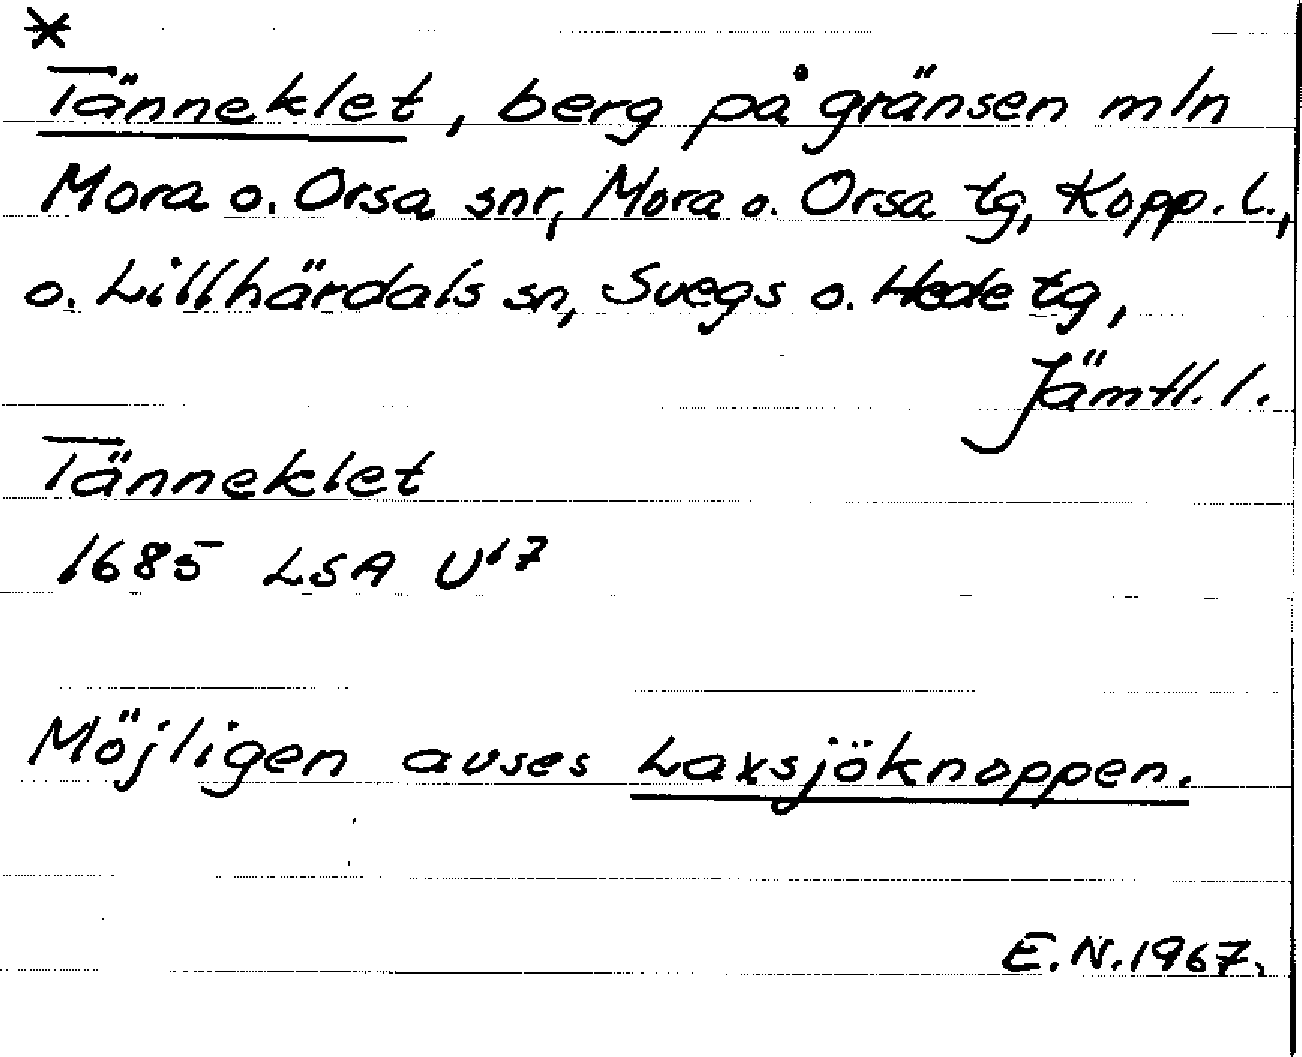 *
Tänneklet, berg på gränsen mln
Mora o. Orsa snr, Mora o. Orsa tg, Kopp. l.,
o. Lillhärdals sn, Svegs o. Hede tg,
Jämtl. l.
Tänneklet
1685 LSA U17
Möjligen avses Laxsjöknoppen.
E.N.1967.